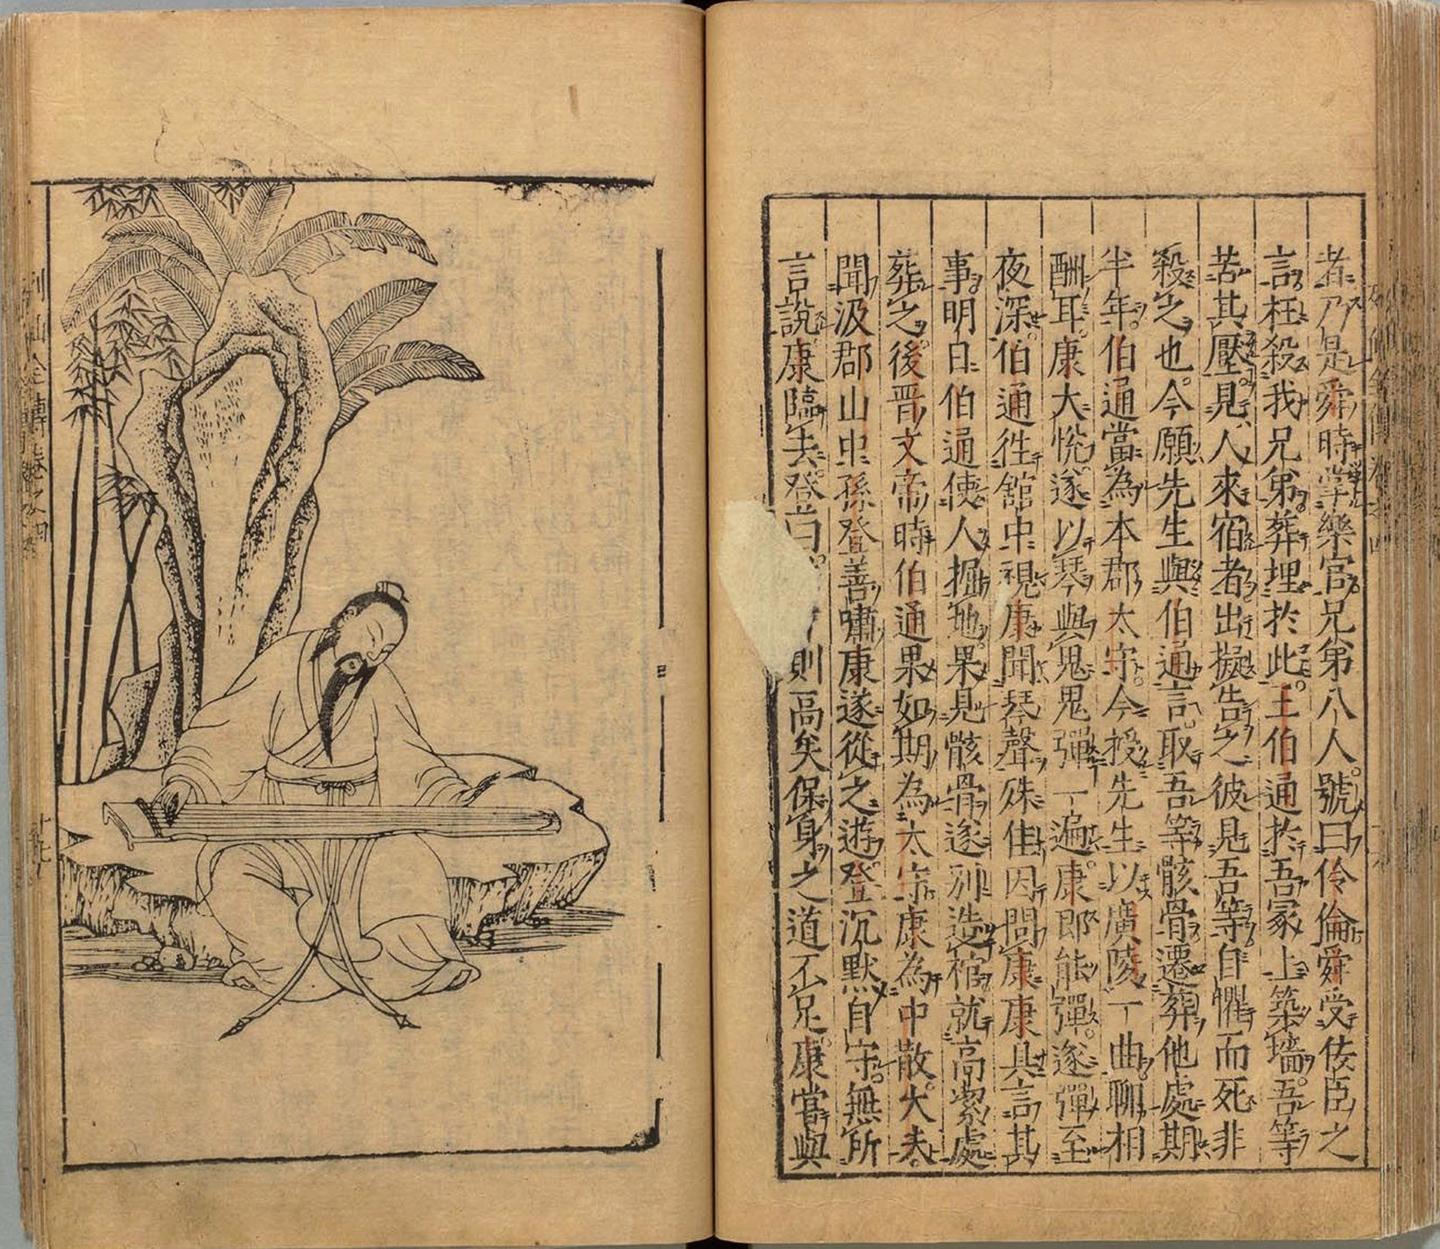 者乃是舜時掌樂官兄弟八人號曰伶倫舜受佞臣之
言枉殺我兄弟葬埋於此王伯通於吾冢上築墻吾等
苦其壓見人來宿者出擬告之彼見吾等自懼而死非
殺之也今願先生與伯通言取吾等骸骨遷葬他處期
半年伯通當為本郡太守今授先生以廣陵一曲聊相
酬耳康大悅遂以琴與鬼鬼彈一遍康即能彈遂彈至
夜深伯通往館中視康聞琴聲殊佳因問康康具言其
事明日伯通使人掘地果見骸骨遂別造棺就高潔處
葬之後晋文帝時伯通果如期為太守康為中散大夫
聞汲郡山中孫登善嘯康遂從之遊登沉默自守無所
言說康臨去登曰則高矣保身之道不足康嘗與
列仙全傳卷之四
十七